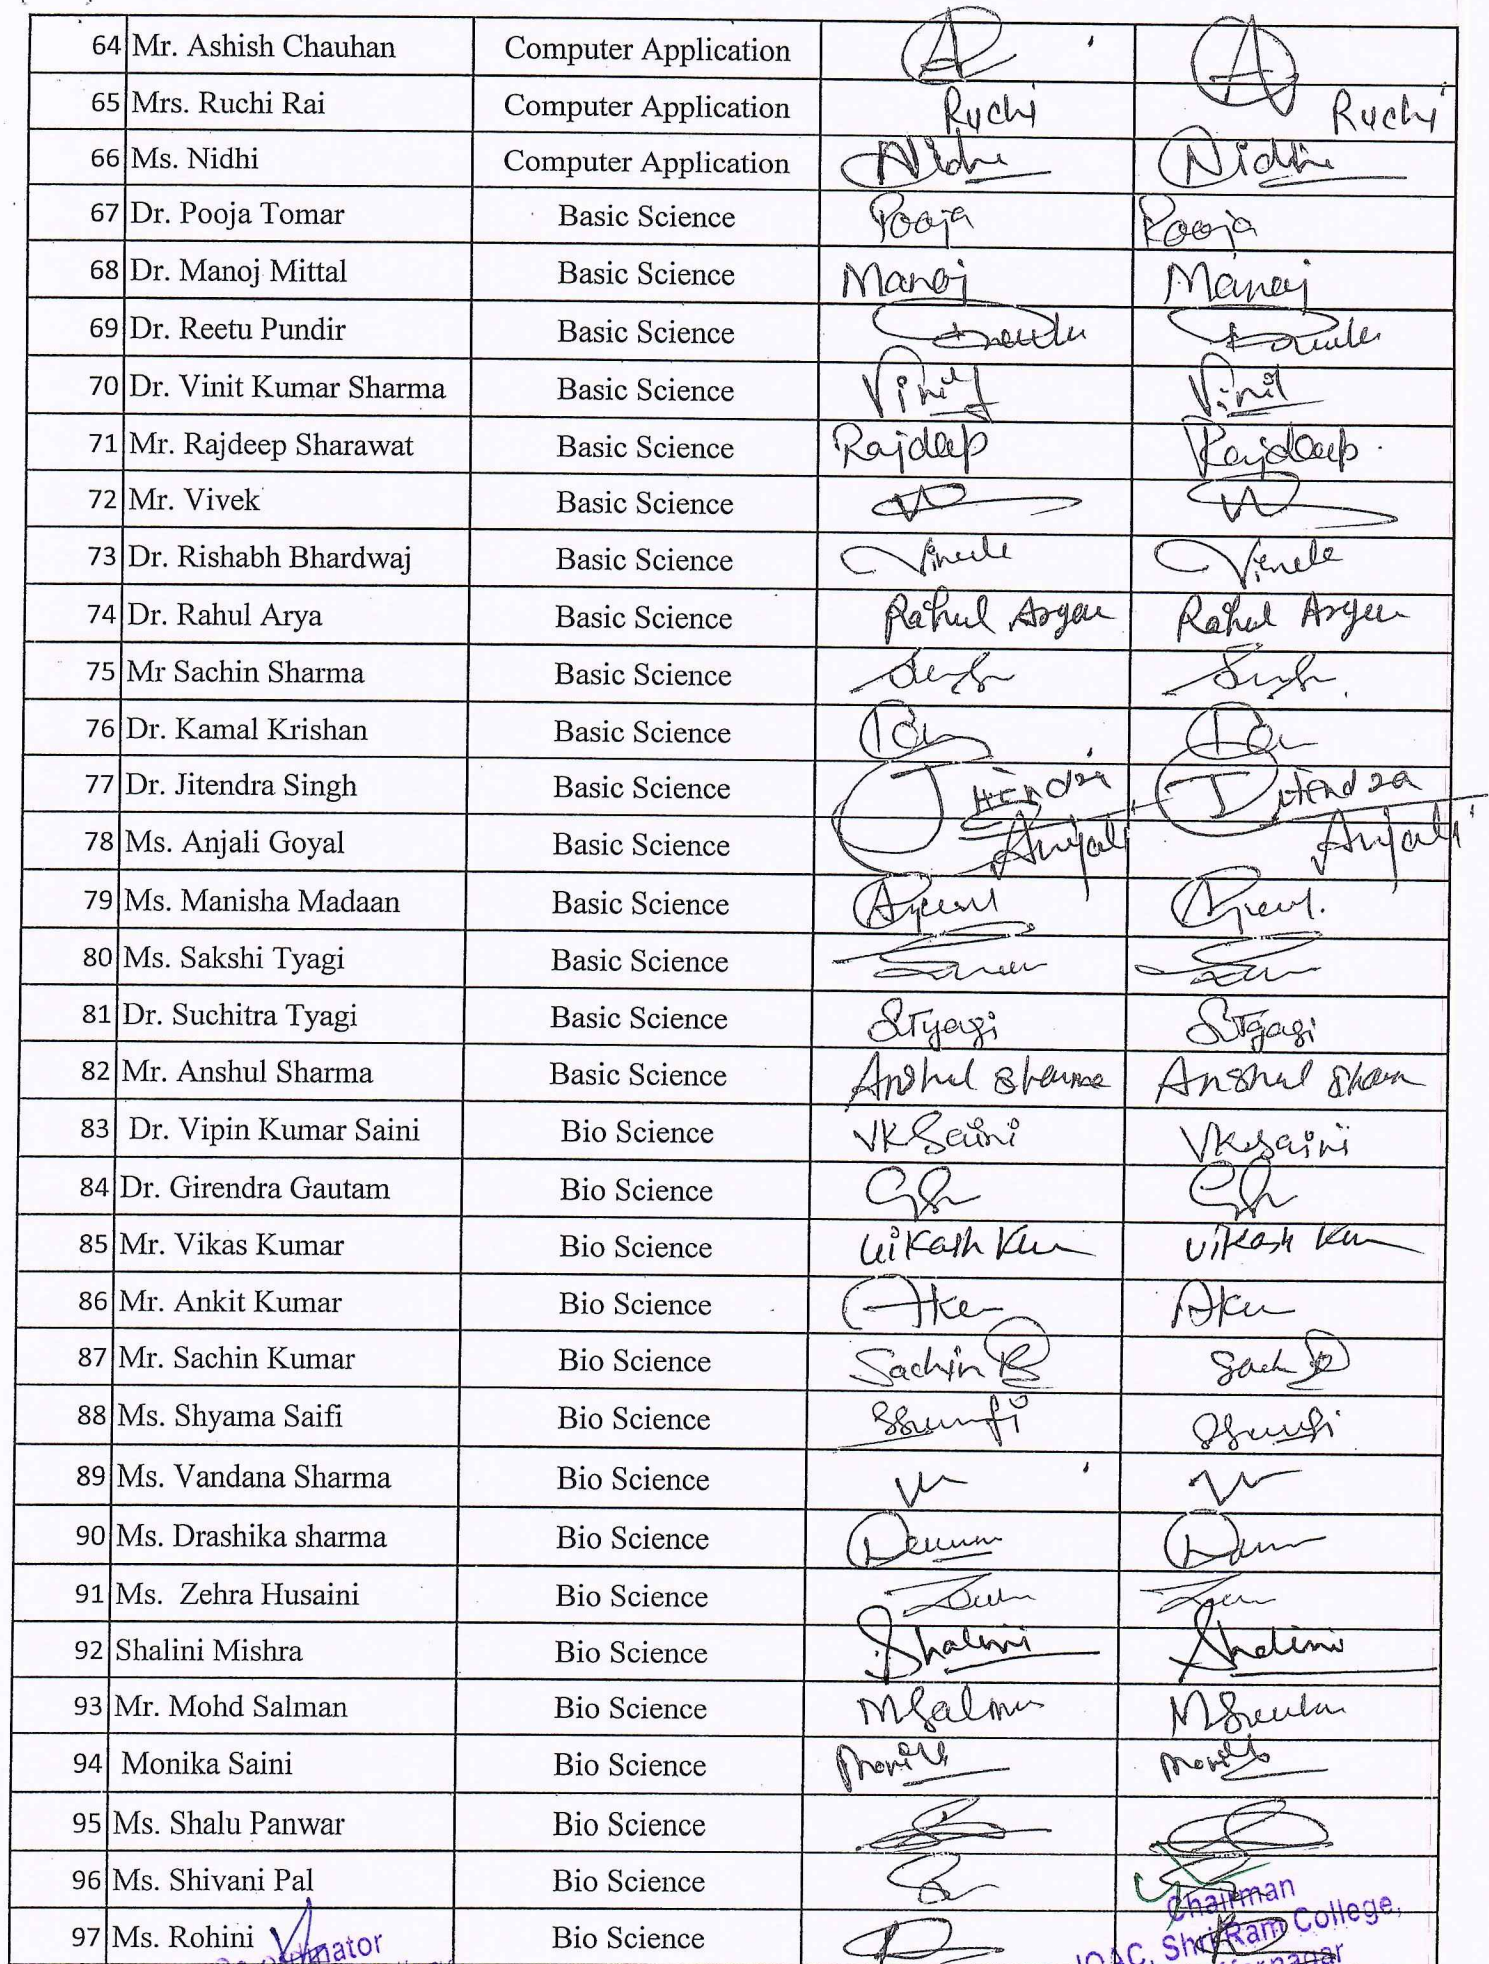 64 Mr. Ashish Chauhan Computer Application
65 Mrs. Ruchi Rai Computer Application Ruchi Ruchi
66 Ms. Nidhi Computer Application Nidhi Nidhi
67 Dr. Pooja Tomar Basic Science Pooja Pooja
68 Dr. Manoj Mittal Basic Science Manoj Manoj
69 Dr. Reetu Pundir Basic Science
70 Dr. Vinit Kumar Sharma Basic Science Vinit Vinit
71 Mr. Rajdeep Sharawat Basic Science Rajdeep Rajdeep
72 Mr. Vivek Basic Science
73 Dr. Rishabh Bhardwaj Basic Science
74 Dr. Rahul Arya Basic Science Rahul Arya Rahul Arya
75 Mr Sachin Sharma Basic Science
76 Dr. Kamal Krishan Basic Science
77 Dr. Jitendra Singh Basic Science Jitendra Jitendra
78 Ms. Anjali Goyal Basic Science Anjali Anjali
79 Ms. Manisha Madaan Basic Science
80 Ms. Sakshi Tyagi Basic Science
81 Dr. Suchitra Tyagi Basic Science STyagi STyagi
82 Mr. Anshul Sharma Basic Science Anshul Sharma Anshul Sharm
83 Dr. Vipin Kumar Saini Bio Science VKSaini VKSaini
84 Dr. Girendra Gautam Bio Science
85 Mr. Vikas Kumar Bio Science Vikash Vikash
86 Mr. Ankit Kumar Bio Science
87 Mr. Sachin Kumar Bio Science Sachin
88 Ms. Shyama Saifi Bio Science
89 Ms. Vandana Sharma Bio Science
90 Ms. Drashika sharma Bio Science
91 Ms. Zehra Husaini Bio Science
92 Shalini Mishra Bio Science Shalini Shalini
93 Mr. Mohd Salman Bio Science MSalman
94 Monika Saini Bio Science
95 Ms. Shalu Panwar Bio Science
96 Ms. Shivani Pal Bio Science
97 Ms. Rohini Bio Science
Chairman
IQAC, Shri Ram College,